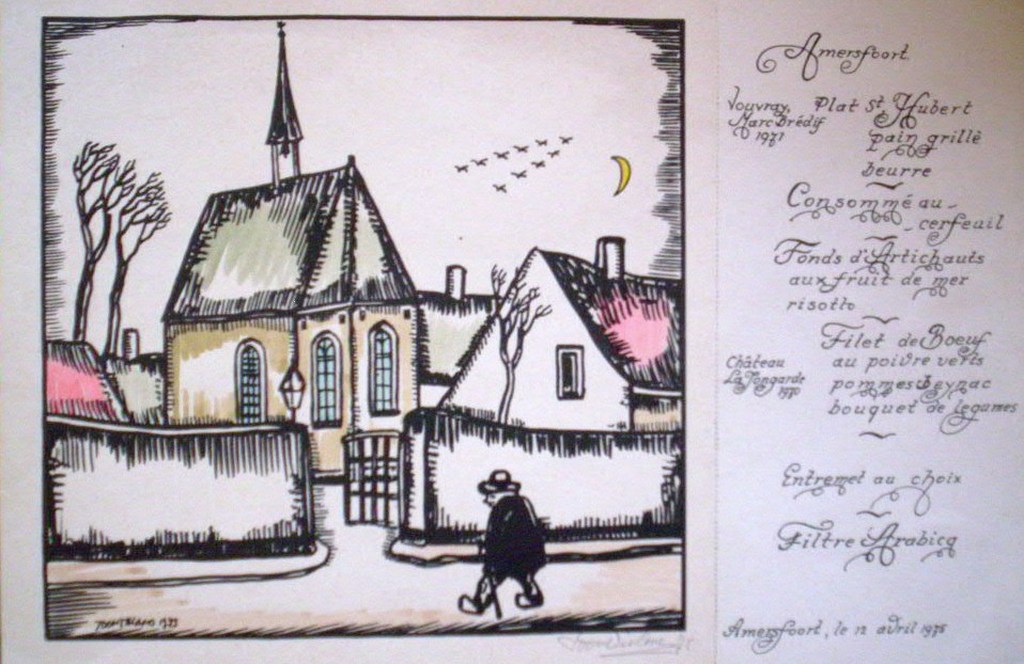 Amersfoort.
Vouvray,
Marc Brédif
1971
Plat St. Hubert
pain grillè
beurre
Consommé au -
- cerfeuil
Fonds d'Artichauts
aux fruit de mer
risotto
Château
La Tongarde
1970
Filet de Boeuf
au poivre verts
pommes Beynac
bouquet de legumes
Entremet au choix
Filtre Arabica
Amersfoort, le 12 avril 1975